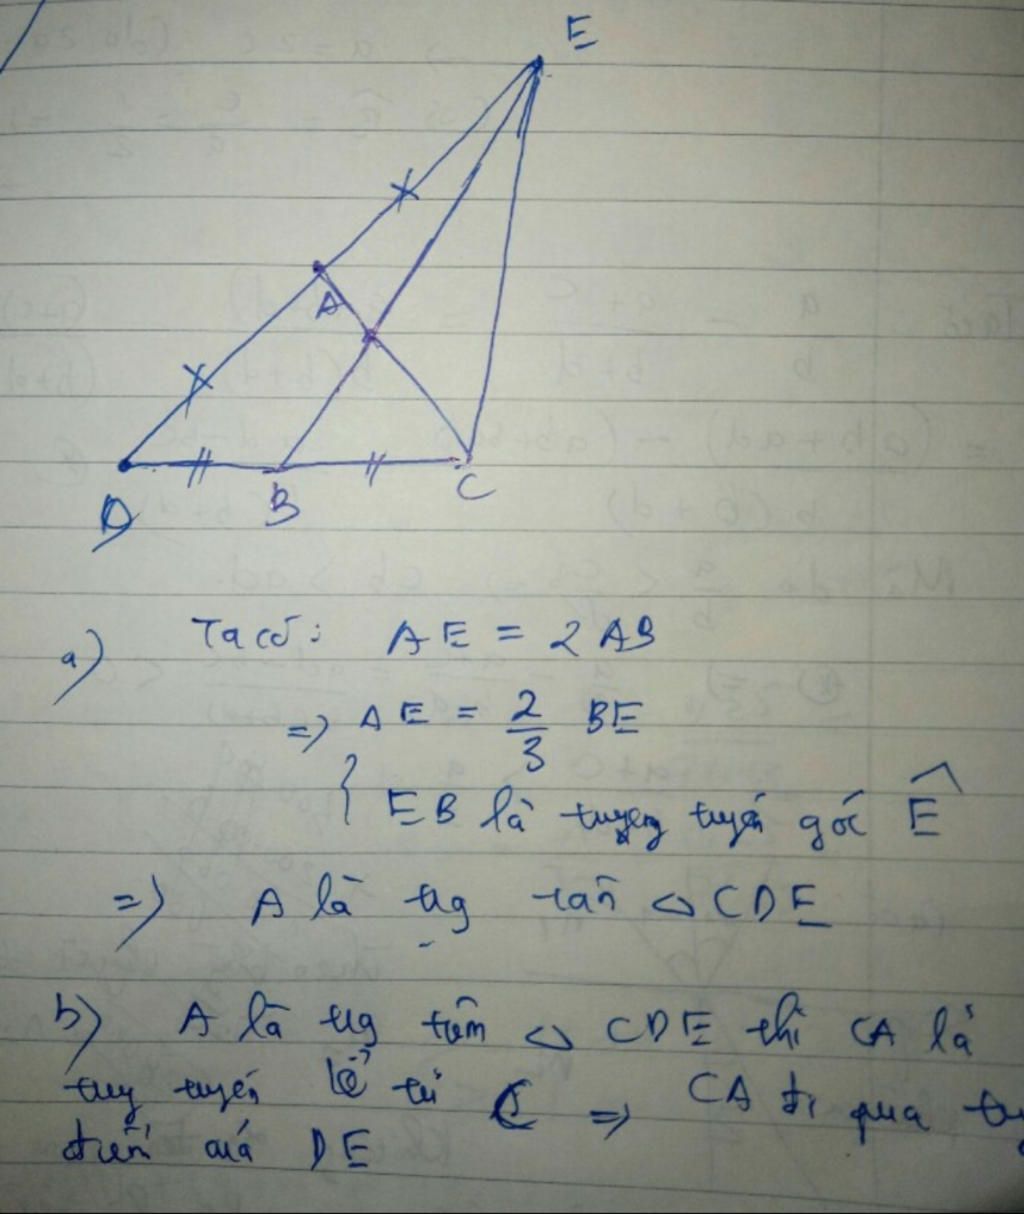 E
A
D
B
C
a) Ta có: AE = 2 AB
=> AE = 2/3 BE
{ EB là tuyến góc Ê
=> A là tâm △ CDE
b) A là tg tâm △ CDE thì CA là
tuyến kẻ từ C => CA đi qua
điểm DE